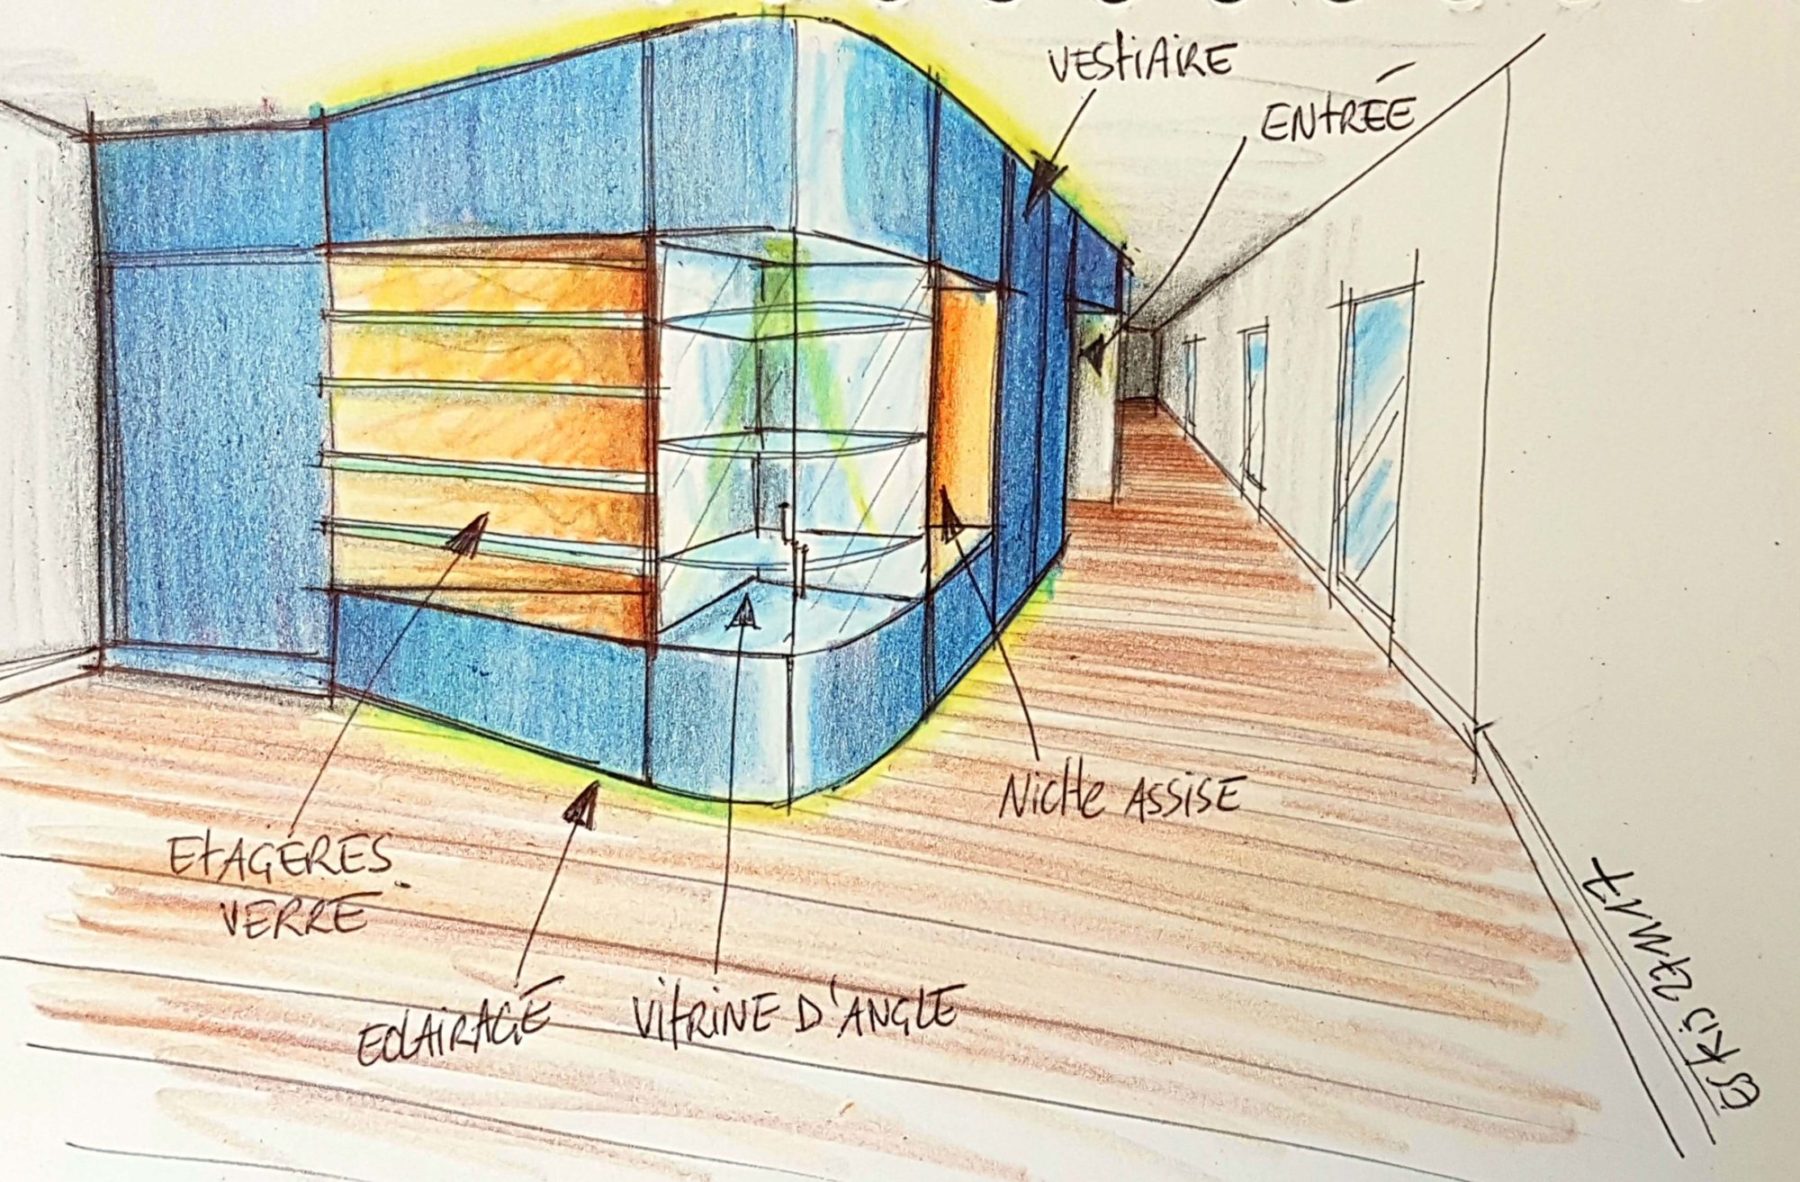 VESTIAIRE
ENTRÉE
NICHE ASSISE
ETAGÈRES
VERRE
ECLAIRAGE
VITRINE D'ANGLE